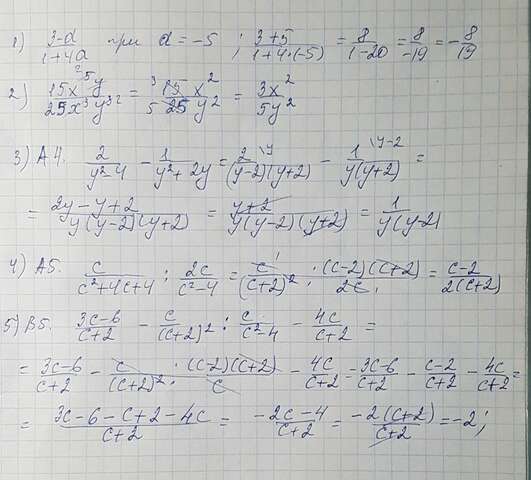 1) (3-a)/(1+4a) при a = -5 ; (3+5)/(1+4·(-5)) = 8/(1-20) = 8/(-19) = -8/19
2) 15x⁵y/25x³y³ = ³15x²/₅25y² = 3x²/5y²
3) A4. 2/(y²-4) - 1/(y²+2y) = 2\y/(y-2)(y+2) - 1\y-2/y(y+2) =
= (2y-y+2)/y(y-2)(y+2) = (y+2)/y(y-2)(y+2) = 1/y(y-2)
4) A5. c/(c²+4c+4) : 2c/(c²-4) = c/(c+2)² · (c-2)(c+2)/2c = (c-2)/2(c+2)
5) B5. (3c-6)/(c+2) - c/(c+2)² : c/(c²-4) - 4c/(c+2) =
= (3c-6)/(c+2) - c/(c+2)² · (c-2)(c+2)/c - 4c/(c+2) = (3c-6)/(c+2) - (c-2)/(c+2) - 4c/(c+2) =
= (3c-6-c+2-4c)/(c+2) = (-2c-4)/(c+2) = -2(c+2)/(c+2) = -2;